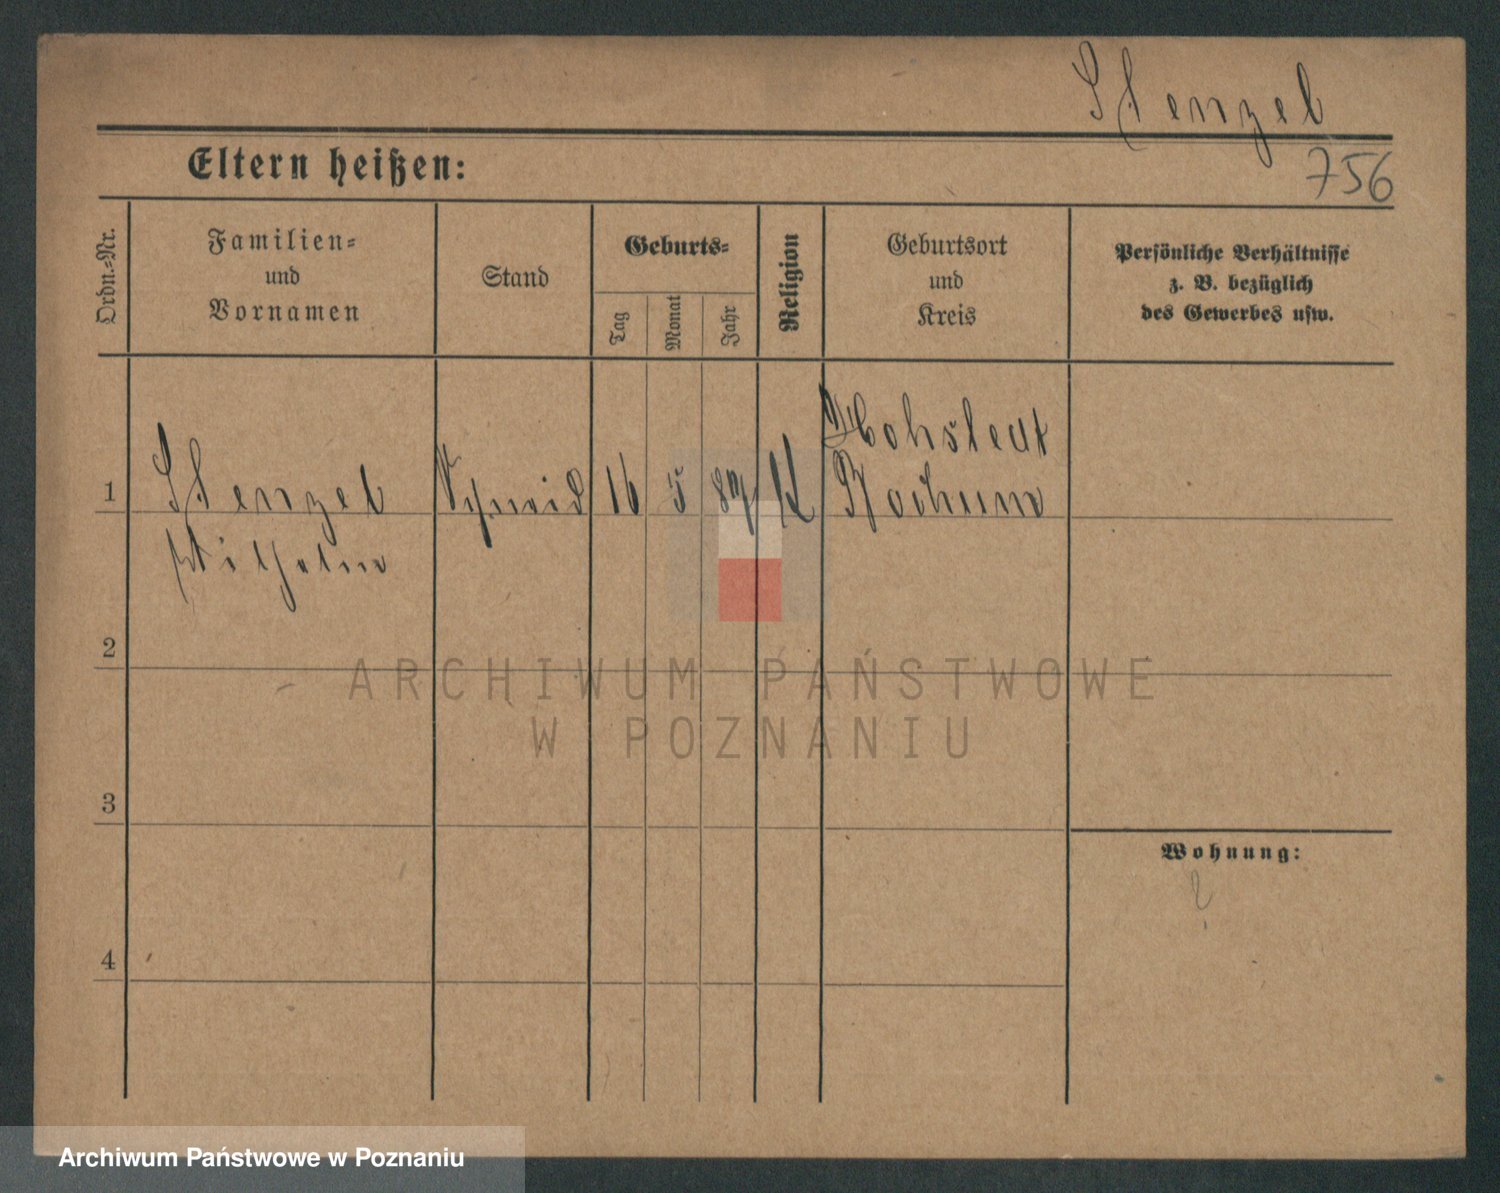 Stenzel
Eltern heißen:
756
Ordn.-Nr.
Familien-
und
Vornamen
Stand
Geburts-
Tag
Monat
Jahr
Religion
Geburtsort
und
Kreis
Persönliche Verhältnisse
z. B. bezüglich
des Gewerbes usw.
1
Stenzel
Wilhelm
Schmied
16
5
87
K
Bochum
2
3
4
Wohnung:
?
ARCHIWUM PAŃSTWOWE
W POZNANIU
Archiwum Państwowe w Poznaniu